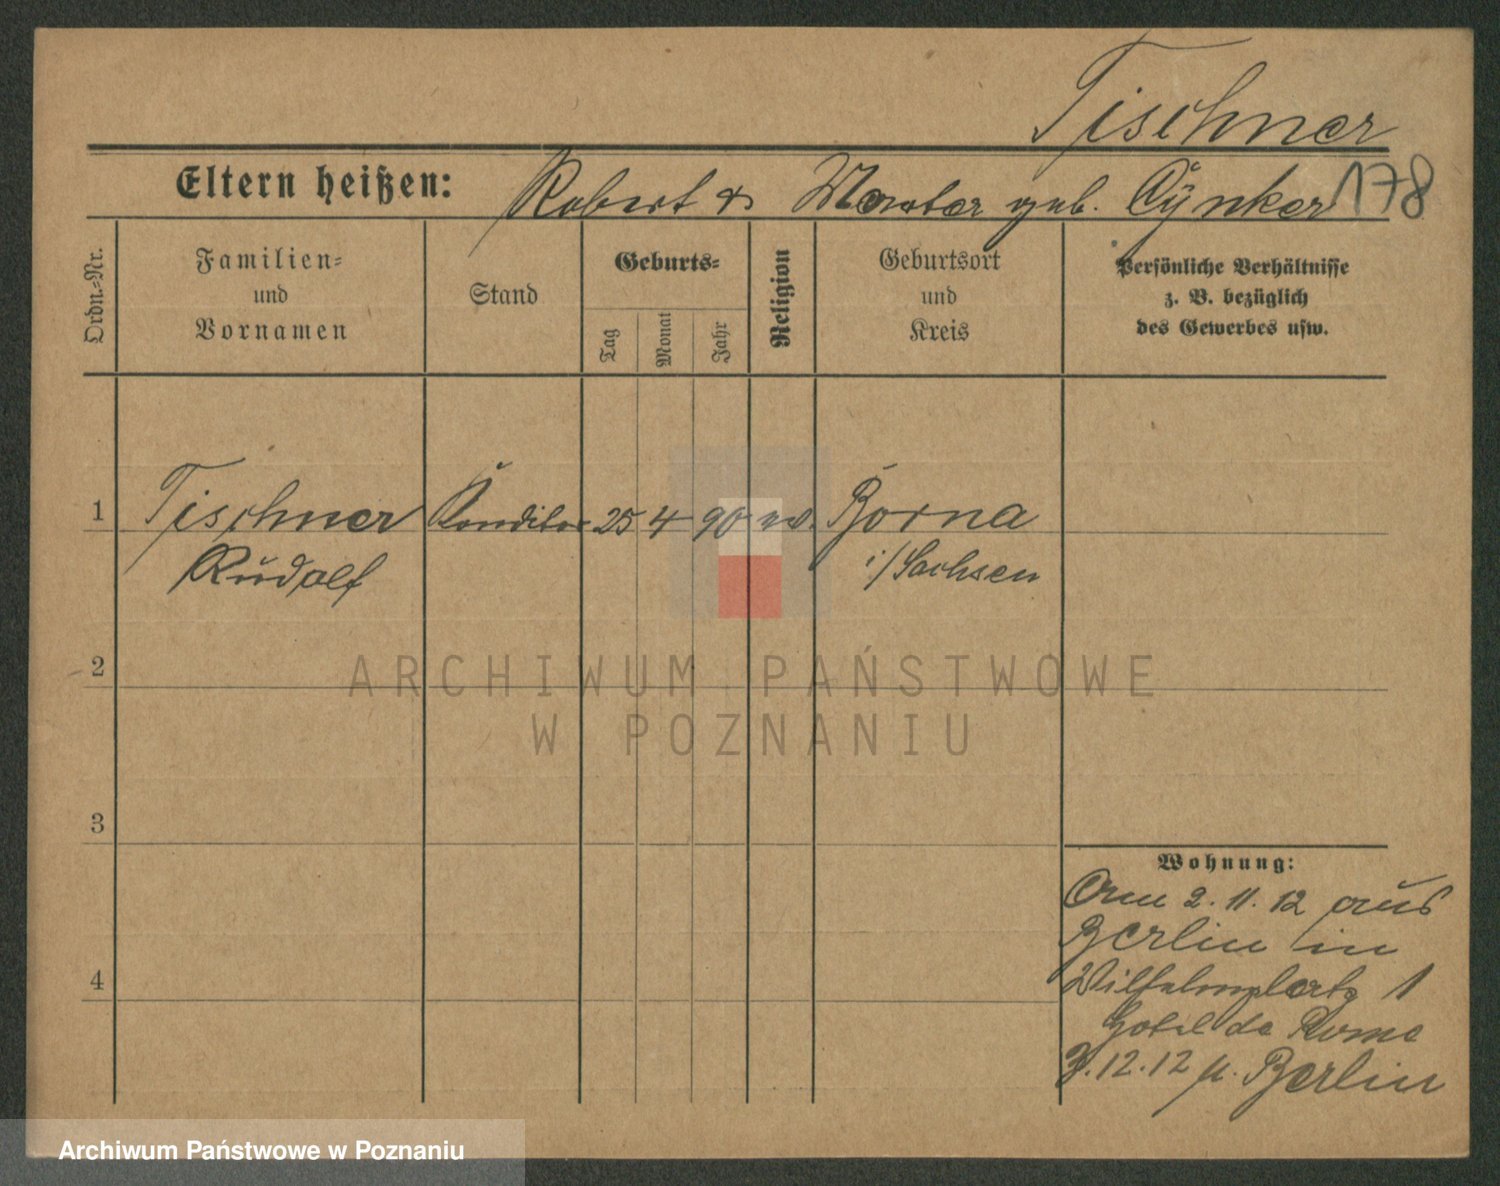 Tischner
Eltern heißen: Robert & geb. 178
Ordn.-Nr.
Familien-
und
Vornamen
Stand
Geburts-
Tag
Monat
Jahr
Religion
Geburtsort
und
Kreis
Persönliche Verhältnisse
z. B. bezüglich
des Gewerbes usw.
1 Tischner Konditor 25 4 90 ev. Borna
Rudolf i/Sachsen
2
ARCHIWUM PAŃSTWOWE
W POZNANIU
3
Wohnung:
Am 2.11.12 aus
Berlin in
4 Wilhelmplatz 1
Hotel de Rome
3.12.12 n. Berlin
Archiwum Państwowe w Poznaniu